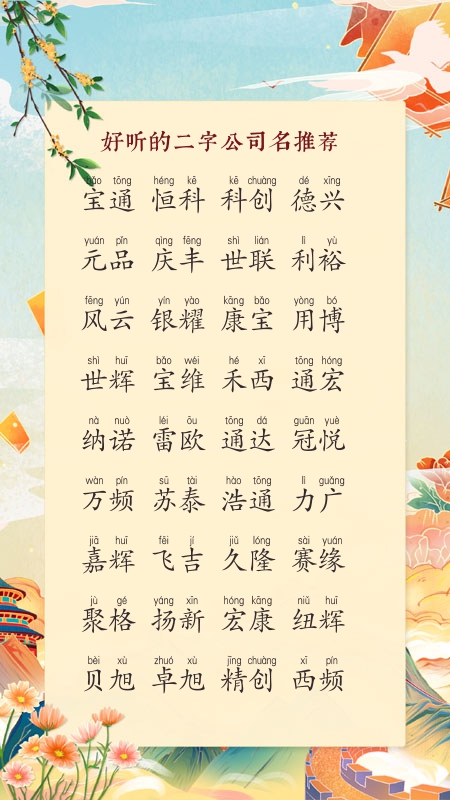 好听的二字公司名推荐
bǎo tōng héng kē kē chuàng dé xīng
宝通 恒科 科创 德兴
yuán pǐn qìng fēng shì lián lì yù
元品 庆丰 世联 利裕
fēng yún yín yào kāng bǎo yòng bó
风云 银耀 康宝 用博
shì huī bǎo wéi hé xī tōng hóng
世辉 宝维 禾西 通宏
nà nuò léi ōu tōng dá guān yuè
纳诺 雷欧 通达 冠悦
wàn pín sū tài hào tōng lì guǎng
万频 苏泰 浩通 力广
jiā huī fēi jí jiǔ lóng sài yuán
嘉辉 飞吉 久隆 赛缘
jù gé yáng xīn hóng kāng niǔ huī
聚格 扬新 宏康 纽辉
bèi xù zhuó xù jīng chuàng xī pín
贝旭 卓旭 精创 西频